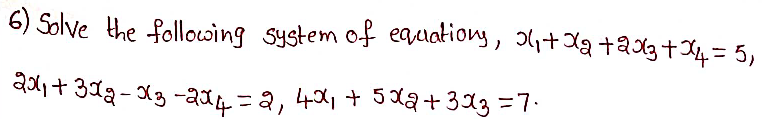 6) Solve the following system of equations, x₁+x₂+2x₃+x₄=5,
2x₁+3x₂-x₃-2x₄=2, 4x₁+5x₂+3x₃=7.